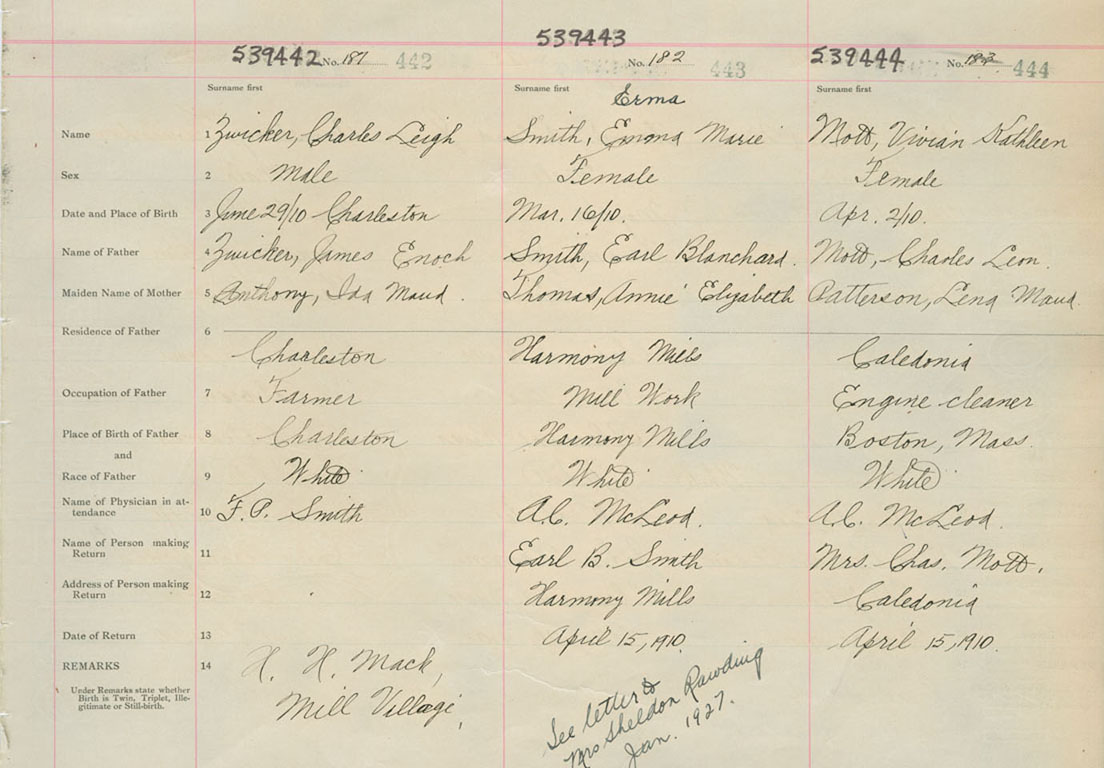 539443
539442 No. 181 442 No. 182 443 539444 No. 183 444
Surname first Surname first Surname first
Erma
Name 1 Zwicker, Charles Leigh Smith, Emona Marie Mott, Vivian Kathleen
Sex 2 Male Female Female
Date and Place of Birth 3 June 29/10 Charleston Mar. 16/10. Apr. 2/10.
Name of Father 4 Zwicker, James Enoch Smith, Earl Blanchard. Mott, Charles Leon.
Maiden Name of Mother 5 Anthony, Ida Maud. Thomas, Annie Elizabeth Patterson, Lena Maud.
Residence of Father 6
Charleston Harmony Mills Caledonia
Occupation of Father 7 Farmer Mill Work Engine cleaner
Place of Birth of Father 8 Charleston Harmony Mills Boston, Mass.
and
Race of Father 9 White White White
Name of Physician in at-
tendance 10 F.P. Smith A.C. McLeod. A.C. McLeod.
Name of Person making
Return 11 Earl B. Smith Mrs. Chas. Mott.
Address of Person making
Return 12 Harmony Mills Caledonia
Date of Return 13 April 15, 1910. April 15, 1910.
REMARKS 14 H. H. Mack,
Under Remarks state whether
Birth is Twin, Triplet, Ille-
gitimate or Still-birth.
Mill Village,
See letter to
Mrs Sheldon Rawding
Jan. 1927.